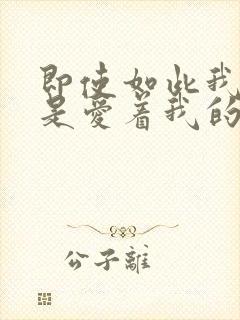 即使如此我
是爱着我的
公子離